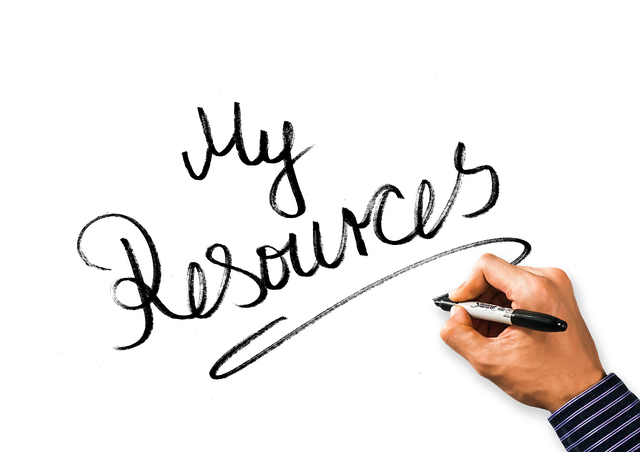 My
Resources